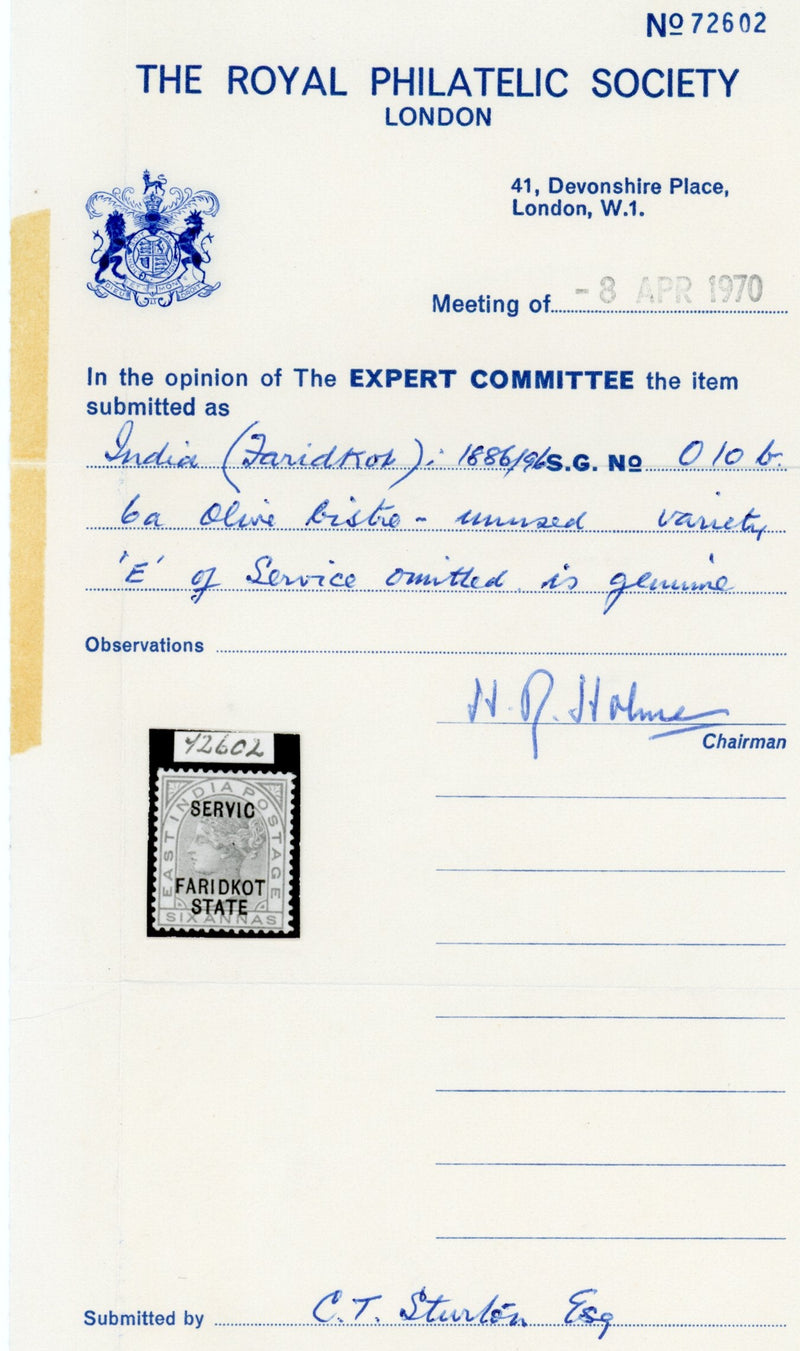 Nº 72602
THE ROYAL PHILATELIC SOCIETY
LONDON
41, Devonshire Place,
London, W.1.
DIEU ET MON DROIT
Meeting of - 8 APR 1970
In the opinion of The EXPERT COMMITTEE the item
submitted as
India (Faridkot): 1886/96 S.G. Nº O10b.
6a Olive bistre - unused variety
'E' of Service omitted is genuine
Observations
H. R. Holmes
Chairman
72602
EAST INDIA POSTAGE
SERVIC
FARIDKOT
STATE
SIX ANNAS
Submitted by C.T. Sturton Esq